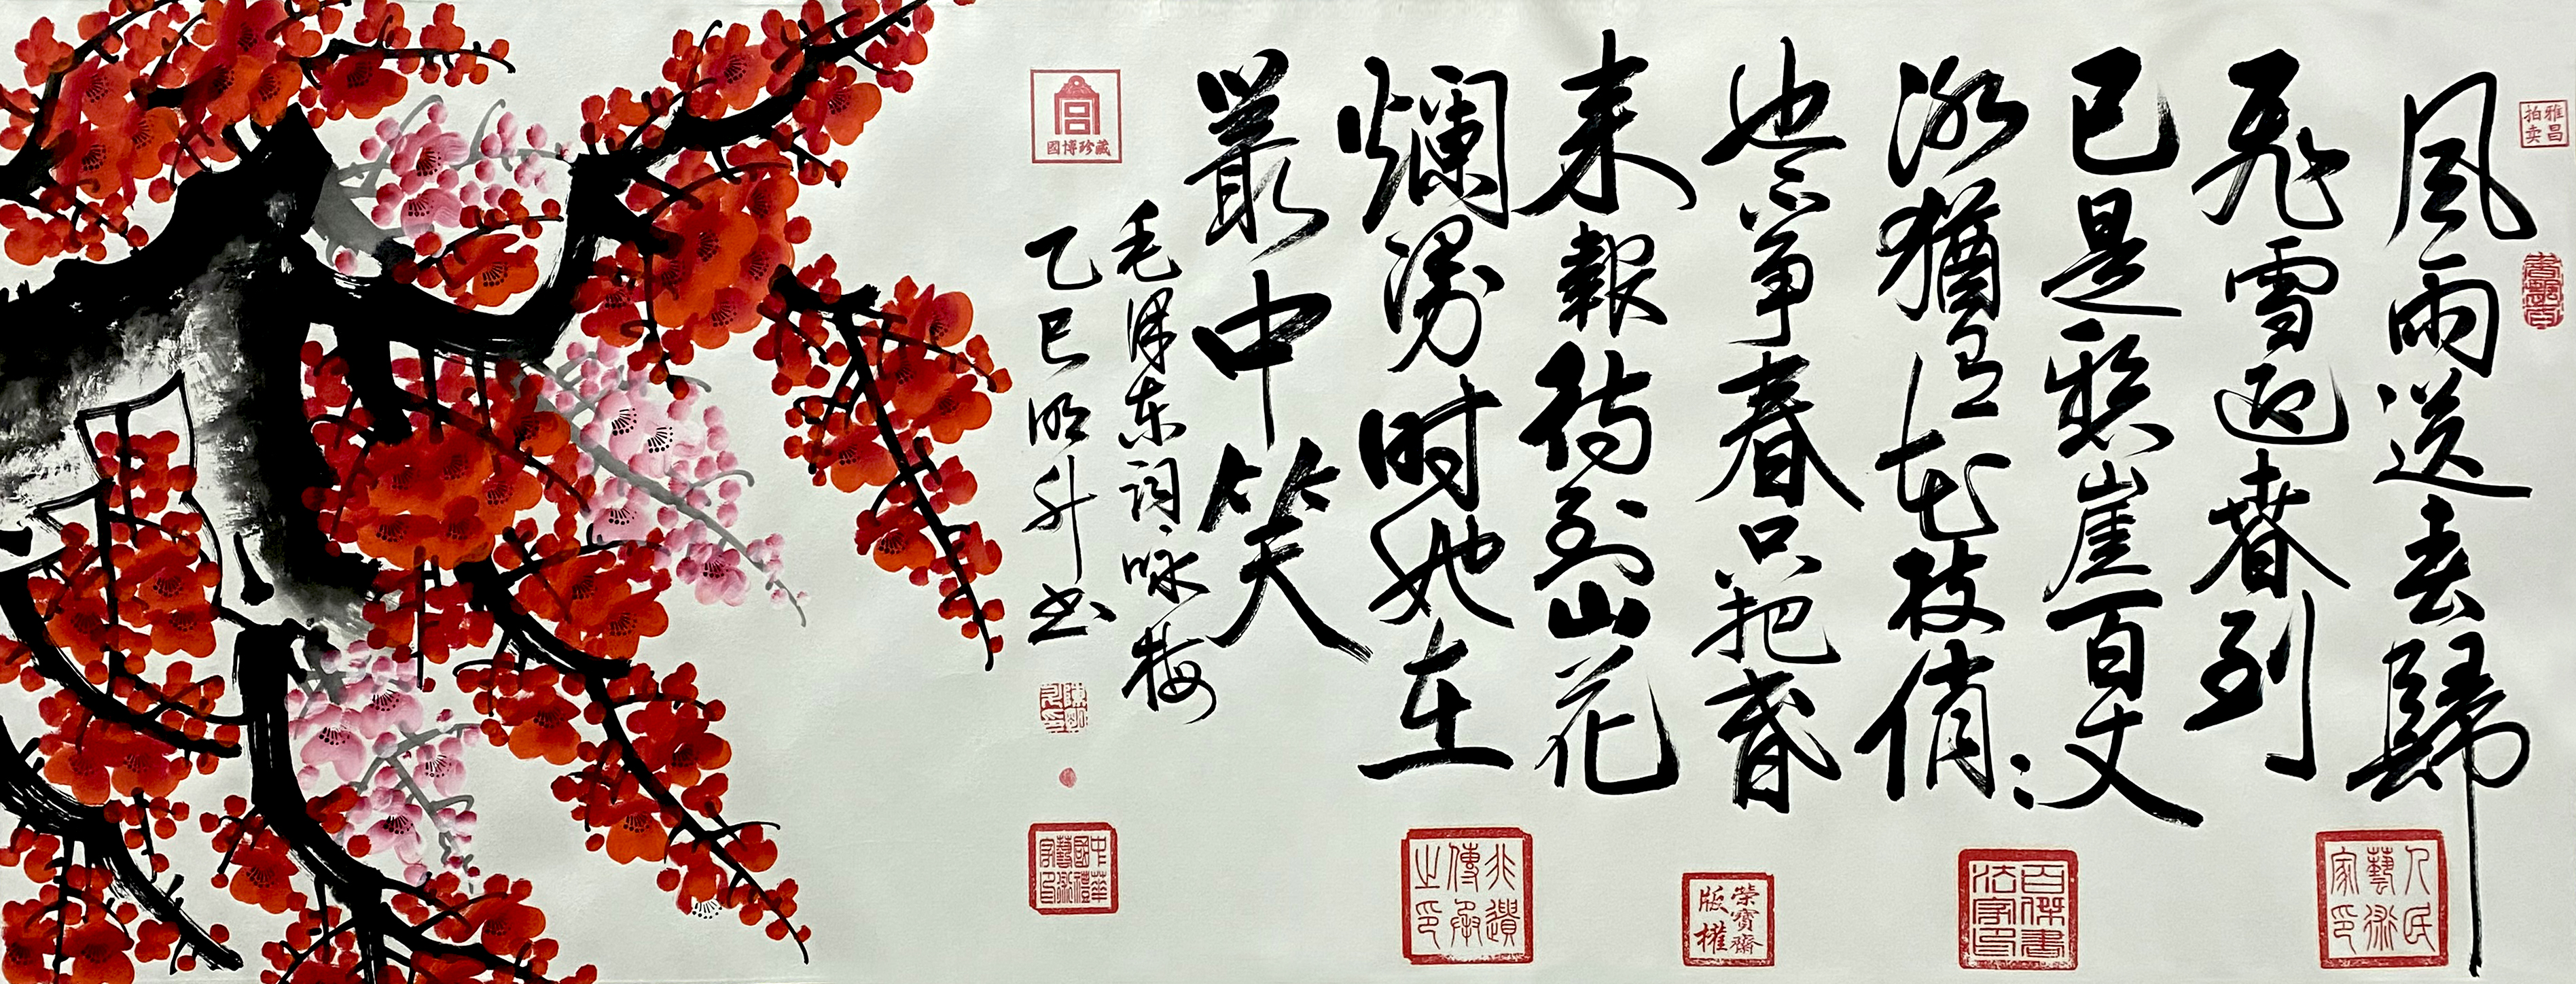 雅昌拍卖
風雨送春歸
飛雪迎春到
已是懸崖百丈
冰猶有花枝俏：
也不爭春只把春
来報待到山花
爛漫时她在
叢中笑
毛泽东词咏梅
乙巳明升书
國博珍藏
人民藝術家印
百傑書法家印
榮寶齋版權
非遺傳承之印
中華國禮藝術家印